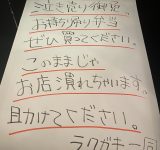 泣き売り御免
お持ち帰り弁当
ぜひ買ってください。
このままじゃ
お店潰れちゃいます。
助けてください。
ラクガキ一同